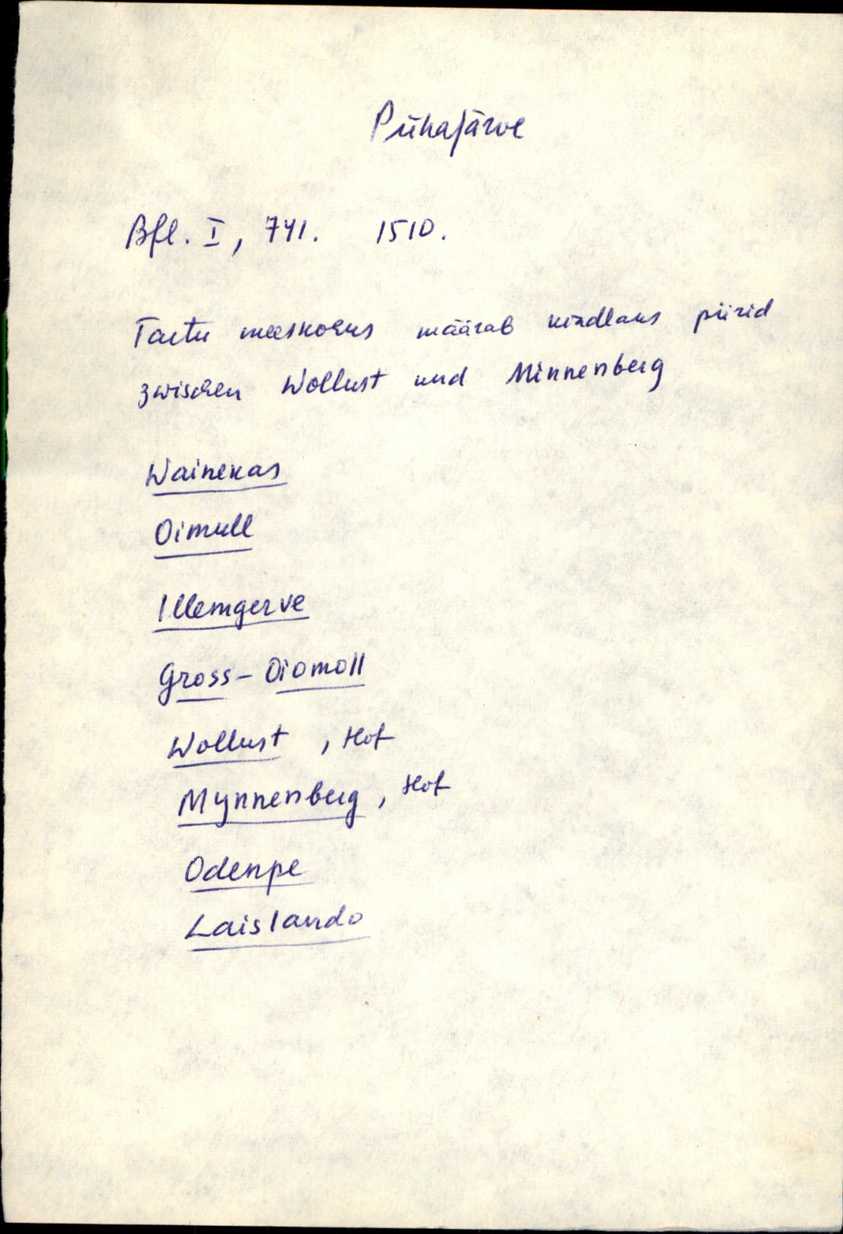 Pühajärve
Bfl. I, 741. 1510.
Tartu meeskohus määrab kindlaks piirid
zwischen Wollust und Minnenberg
Wainekas
Oimull
Illemgerve
Gross-Oiomoll
Wollust, Hof
Mynnenberg, Hof
Odenpe
Laislando